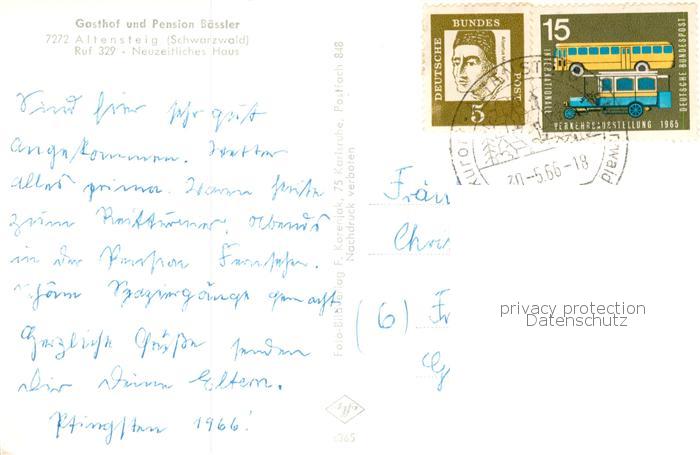 Gasthof und Pension Bässler
7272 Altensteig (Schwarzwald)
Ruf 329 - Neuzeitliches Haus
Sind hier sehr gut
angekommen. Wetter
alles prima. Waren heute
zum Reitturnier, abends
in der Pension Fernsehen.
Schöne Spaziergänge gemacht
Herzliche Grüße senden
Dir Deine Eltern.
Pfingsten 1966!
Foto-Bildverlag F. Korenjak, 75 Karlsruhe, Postfach 848
Nachdruck verboten
effs
DEUTSCHE
BUNDES
POST
5
15
INTERNATIONALE
VERKEHRSAUSSTELLUNG 1965
DEUTSCHE BUNDESPOST
30.-5.66-18
Fräu
Chri
(6) Fr
privacy protection
Datenschutz